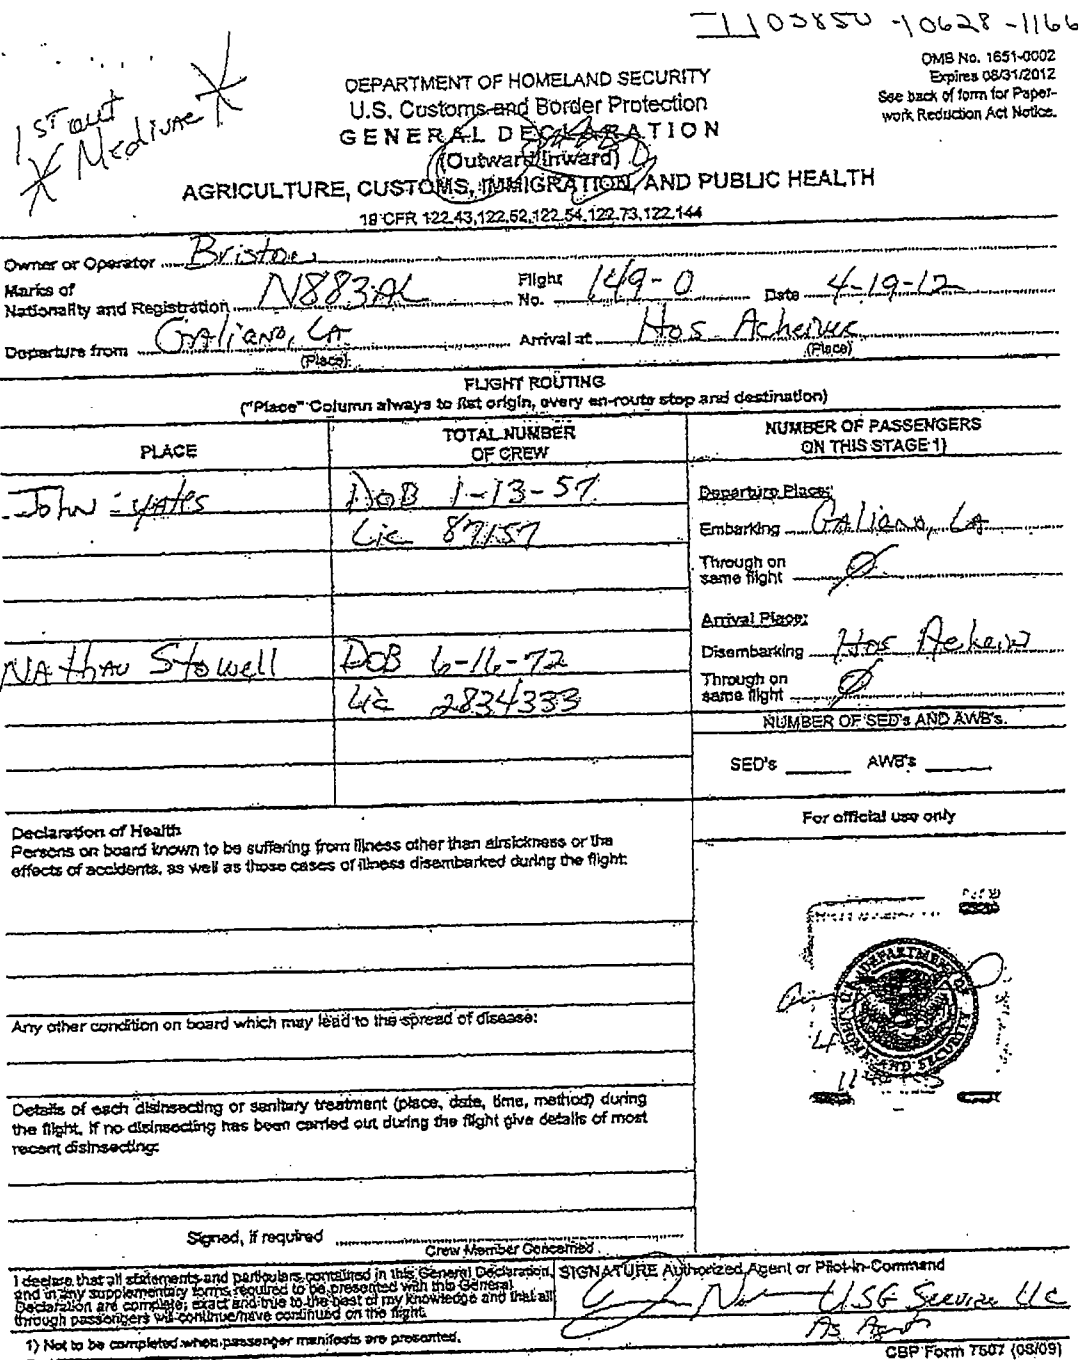 II03850 -10628 -1166
OMB No. 1651-0002
Expires 08/31/2012
See back of form for Paper-
work Reduction Act Notice.
1ST out
Medivac
DEPARTMENT OF HOMELAND SECURITY
U.S. Customs and Border Protection
GENERAL DECLARATION
(Outward/Inward)
AGRICULTURE, CUSTOMS, IMMIGRATION, AND PUBLIC HEALTH
19 CFR 122.43,122.52,122.54,122.73,122.144
Owner or Operator Bristow
Marks of Nationality and Registration N883AL Flight No. 149-0 Date 4-19-12
Departure from Galiano, LA Arrival at Hos Acheiver
(Place) (Place)
FLIGHT ROUTING
("Place" Column always to list origin, every en-route stop and destination)
PLACE
TOTAL NUMBER
OF CREW
NUMBER OF PASSENGERS
ON THIS STAGE 1)
John Yates DOB 1-13-57
Lic 87157
Nathan Stowell DOB 6-16-72
Lic 2834333
Departure Place:
Embarking Galiano, LA
Through on
same flight Ø
Arrival Place:
Disembarking Hos
Through on
same flight Ø
NUMBER OF SED's AND AWB's.
SED's AWB's
Declaration of Health
Persons on board known to be suffering from illness other than airsickness or the
effects of accidents, as well as those cases of illness disembarked during the flight:
Any other condition on board which may lead to the spread of disease:
Details of each disinsecting or sanitary treatment (place, date, time, method) during
the flight. If no disinsecting has been carried out during the flight give details of most
recent disinsecting:
Signed, if required
Crew Member Concerned
For official use only
DEPARTMENT OF
HOMELAND SECURITY
I declare that all statements and particulars contained in this General Declaration,
and in any supplementary forms required to be presented with this General
Declaration are complete, exact and true to the best of my knowledge and that all
through passengers will continue/have continued on the flight.
SIGNATURE Authorized Agent or Pilot-in-Command
Service LLC
As Agent
1) Not to be completed when passenger manifests are presented.
CBP Form 7507 (08/09)